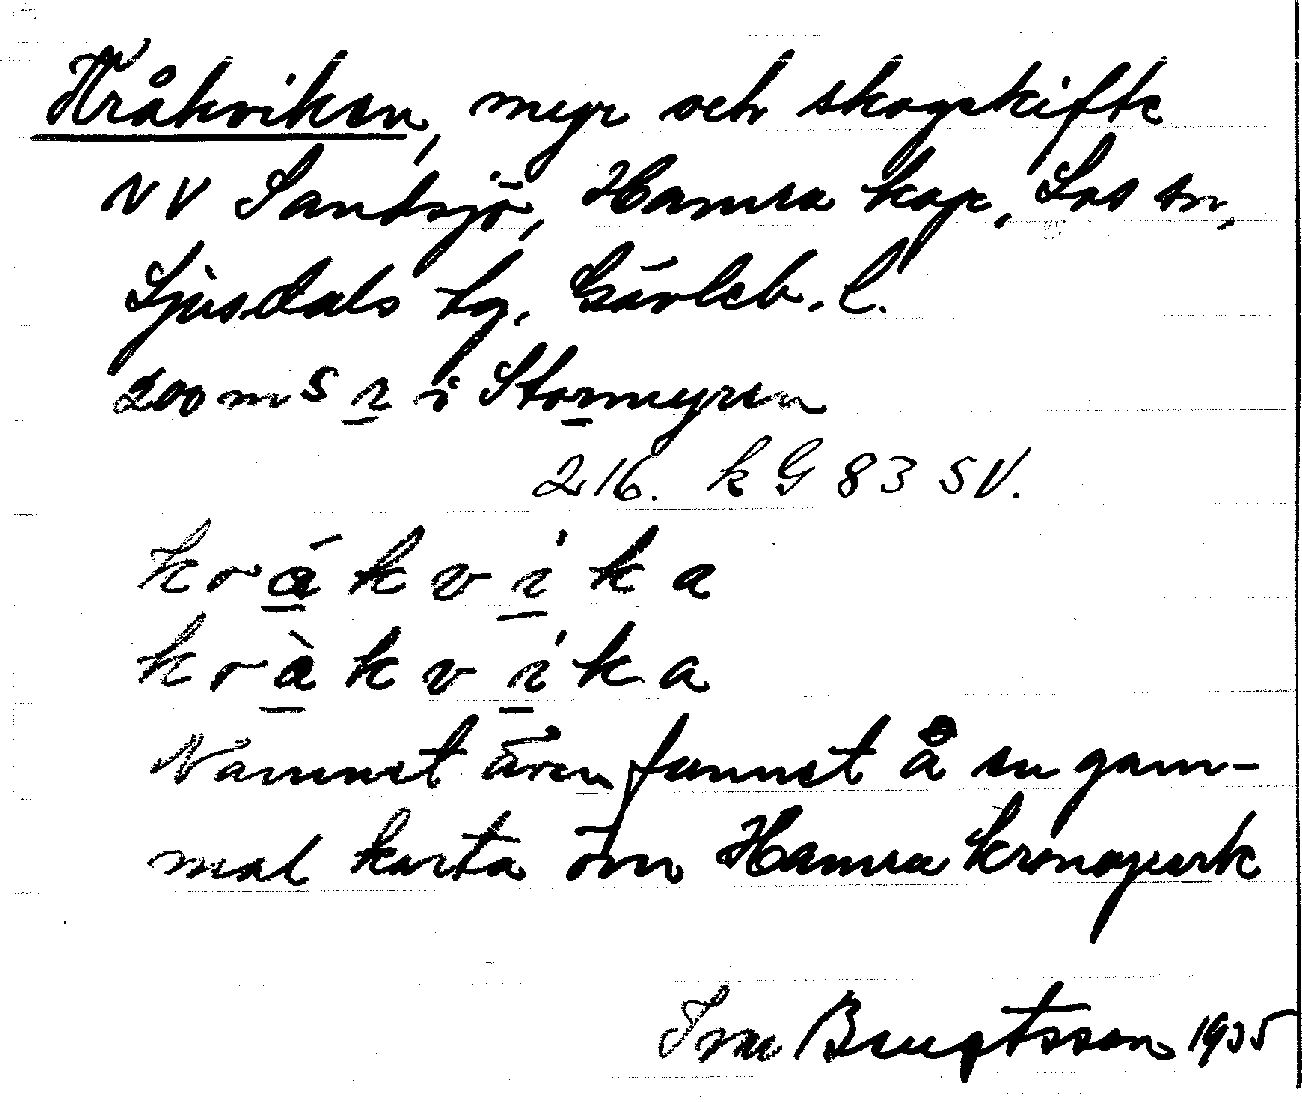 Kråkviken, myr och skogskifte
NV Sandsjö, Hamra kap, Los sn,
Ljusdals tg. Gävleb. l.
200 m S r i Stormyren
216. k G 83 SV.
kråkvika
kràkvika
Namnet även funnet å en gam-
mal karta öm Hamra kronopark
Ivar Bengtsson 1935